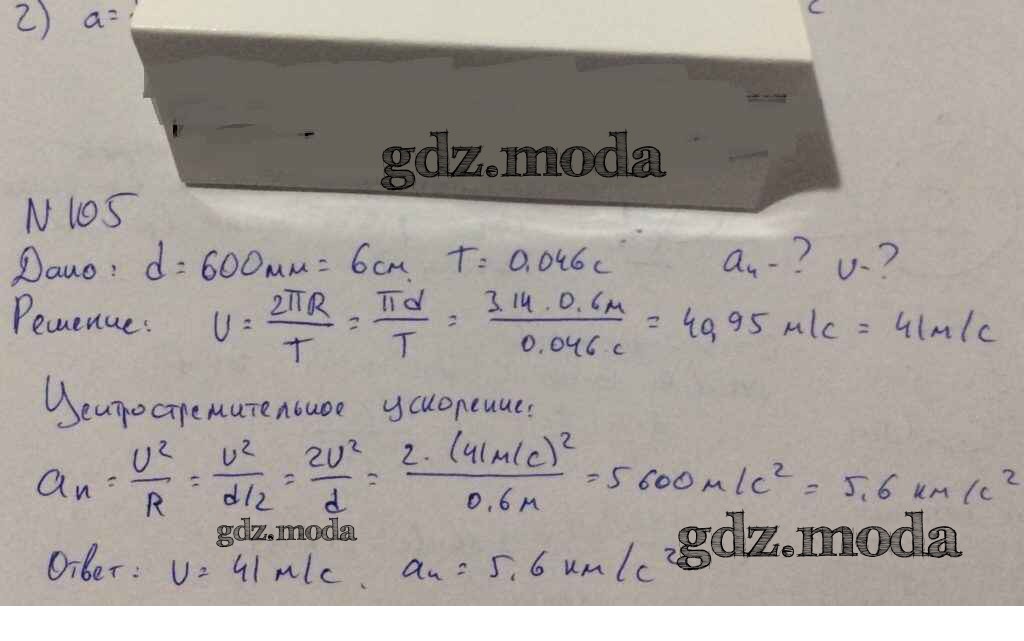 2) a=
gdz.moda
N 105
Дано: d = 600мм = 6см. T = 0.046 с aₙ - ? υ - ?
Решение: υ = 2πR/T = πd/T = 3.14 · 0.6м/0.046 с = 40,95 м/с = 41м/с
Центростремительное ускорение:
aₙ = υ²/R = υ²/d/2 = 2υ²/d = 2 · (41м/с)²/0.6м = 5600м/с² = 5.6 км/с²
gdz.moda
gdz.moda
Ответ: υ = 41 м/с. aₙ = 5.6 км/с²